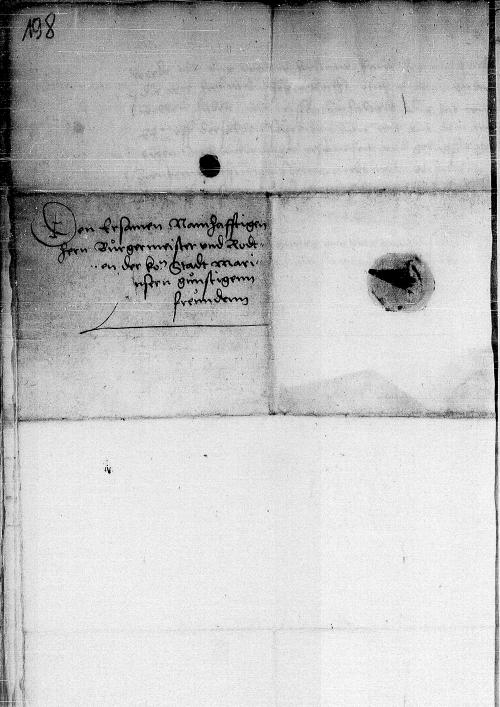 198
Den Ersamen Namhafftigen
hern Bürgermeister und Rodt
en der kon Stadt Mari
günstigenn
freündenn